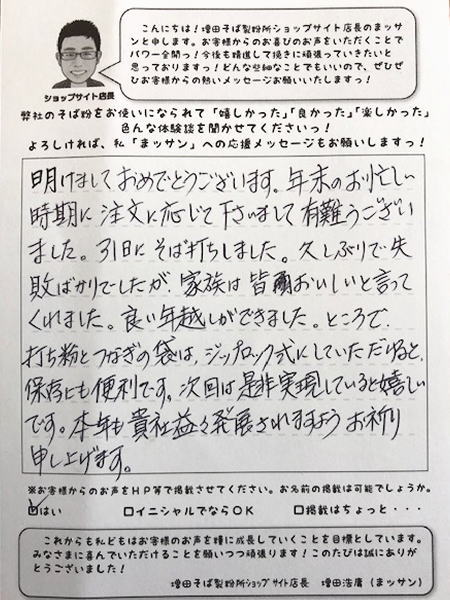 こんにちは！増田そば製粉所ショップサイト店長のまッサ
ンと申します。お客様からのお喜びのお声をいただくことで
パワー全開っ！今後も精進して挽きに頑張っていきたいと
思っておりますっ！どんな些細なことでもいいので、ぜひぜ
ひお客様からの熱いメッセージお願いいたしますっ！
ショップサイト店長
弊社のそば粉をお使いになられて「嬉しかった」「良かった」「楽しかった」
色んな体験談を聞かせてくださいっ！
よろしければ、私「まッサン」への応援メッセージもお願いしますっ！
明けましておめでとうございます。年末のお忙しい
時期に注文に応じて下さいまして有難うござい
ました。31日にそば打ちしました。久しぶりで失
敗ばかりでしたが、家族は皆おいしいと言って
くれました。良い年越しができました。ところで、
打ち粉とつなぎの袋は、ジップロック式にしていただけると、
保存にも便利です。次回は是非実現していると嬉しい
です。本年も貴社益々発展されますようお祈り
申し上げます。
※お客様からのお声をHP等で掲載させてください。お名前の掲載は可能でしょうか。
☑はい □イニシャルでならOK □掲載はちょっと・・・
これからも私どもはお客様のお声を糧に成長していくことを目標としています。
みなさまに喜んでいただけることを願いつつ頑張ります！このたびは誠にありが
とうございました！
増田そば製粉所ショップサイト店長 増田浩庸（まッサン）